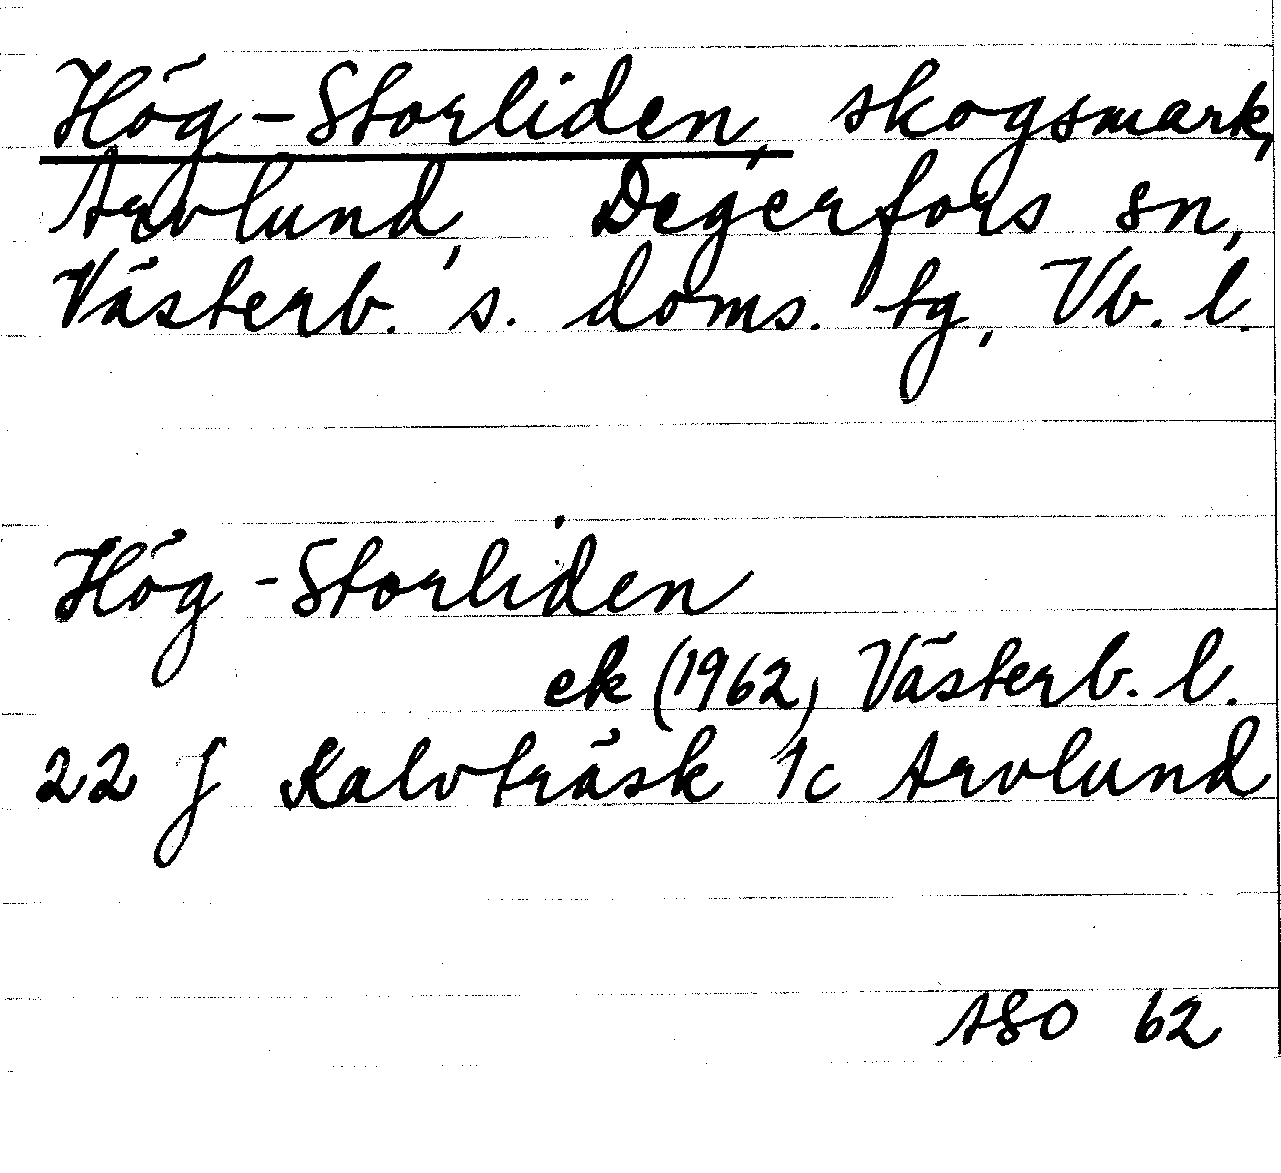 Hög-Storliden, skogsmark,
Arvlund, Degerfors sn,
Västerb. s. doms. tg, Vb. l.
Hög-Storliden
ek (1962) Västerb. l.
22 J Kalvträsk 1c Arvlund
ASO 62